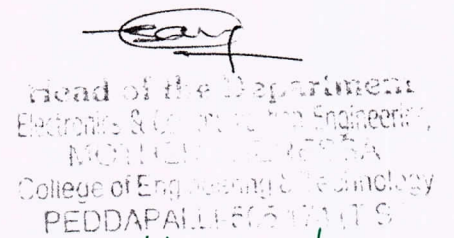 Head of the Department
Electronics & Communication Engineering,
MOTHER TERESSA
College of Engineering & Technology
PEDDAPALLI-505 174 (T S